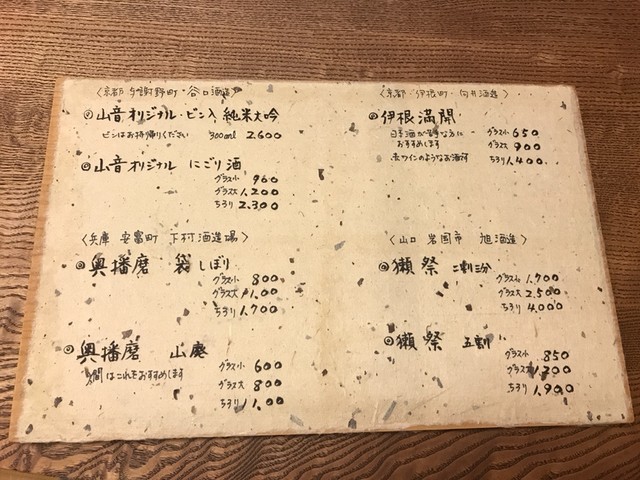 〈京都 与謝野町・谷口酒造〉
◎山音オリジナル・ビン入 純米大吟
ビンはお持帰りください 300ml 2,600
◎山音オリジナル にごり酒
グラス小 960
グラス大 1,200
ちろり 2,300
〈兵庫 安富町 下村酒造場〉
◎奥播磨 袋しぼり
グラス小 800
グラス大 1,100
ちろり 1,700
◎奥播磨 山廃
燗はこれをおすすめします
グラス小 600
グラス大 800
ちろり 1,100
〈京都・伊根町・向井酒造〉
◎伊根満開
日本酒が苦手な方に
おすすめします
赤ワインのようなお酒です
グラス小 650
グラス大 900
ちろり 1,400
〈山口 岩国市 旭酒造〉
◎獺祭 二割三分
グラス小 1,700
グラス大 2,500
ちろり 4,000
◎獺祭 五割
グラス小 850
グラス大 1,200
ちろり 1,900